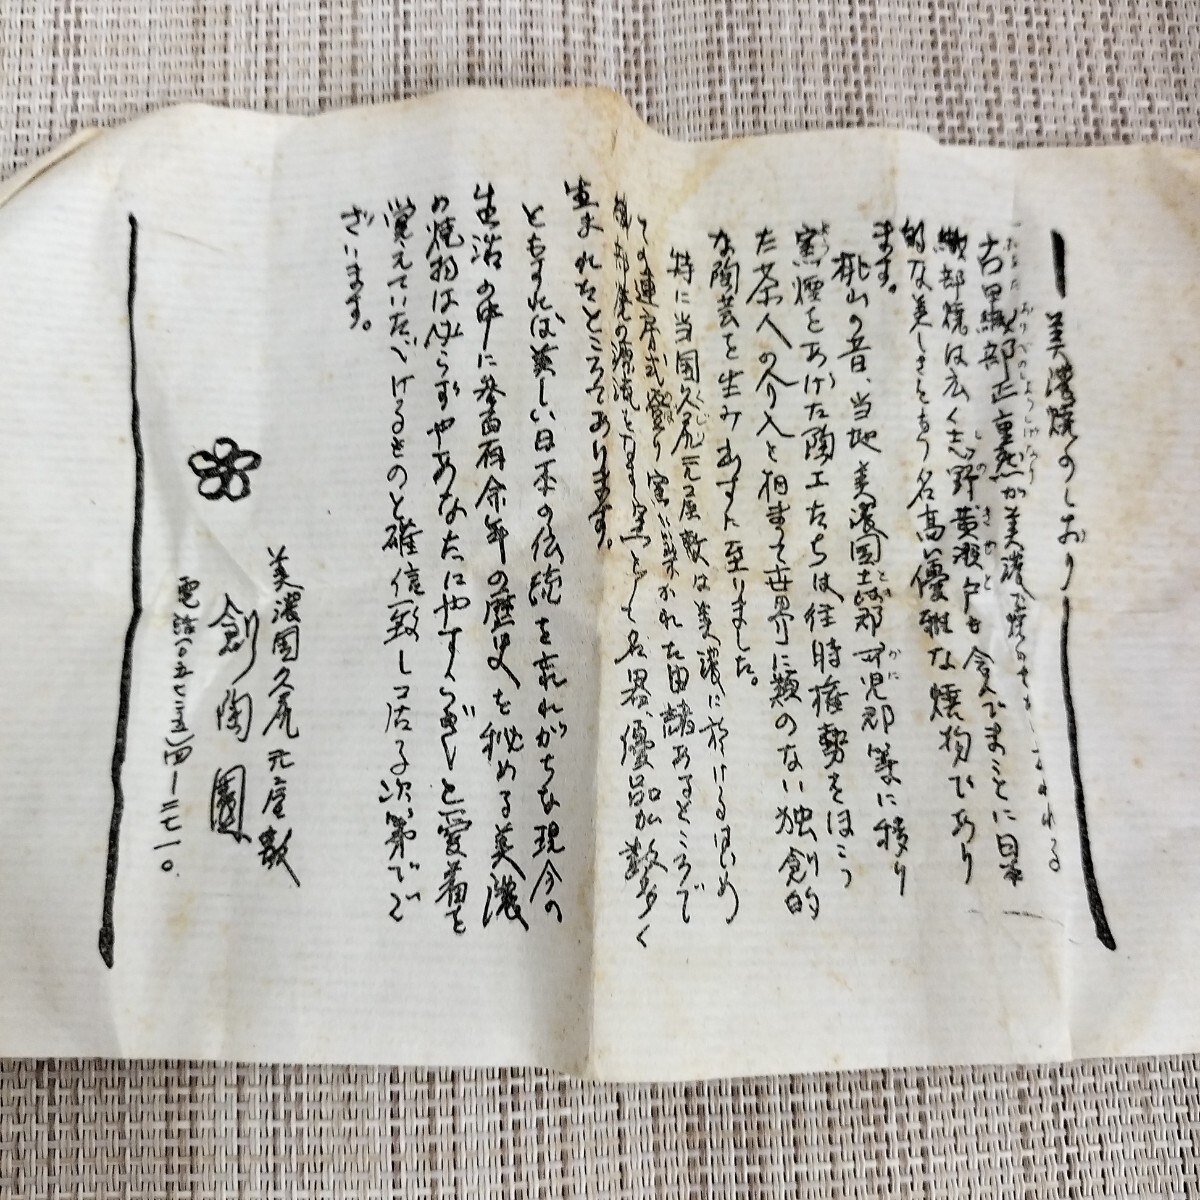 美濃焼のしおり
古田織部正重然が美濃で焼かせたといわれる
織部焼は広く志野黄瀬戸も含んでまことに日本
的な美しさをもつ名高い優雅な焼物であり
ます。
桃山の昔、当地美濃国土岐郡可児郡等に移り
窯煙をあげた陶工たちは往時権勢をほこっ
た茶人の介入と相まって世界に類のない独創的
な陶芸を生み出すに至りました。
特に当国久尻元屋敷は美濃に於けるはじめ
ての連房式登り窯に築かれた由緒あるところで
織部焼の源流をなす窯として名器、優品が数多く
生まれたところであります。
ともすれば美しい日本の伝統を忘れがちな現今の
生活の中に参百有余年の歴史を秘める美濃
の焼物は必らずやあなたにやすらぎと愛着を
覚えていただけるものと確信致して居る次第でご
ざいます。
美濃国久尻元屋敷
創陶園
電話(〇五七二五)四-三二七一〇